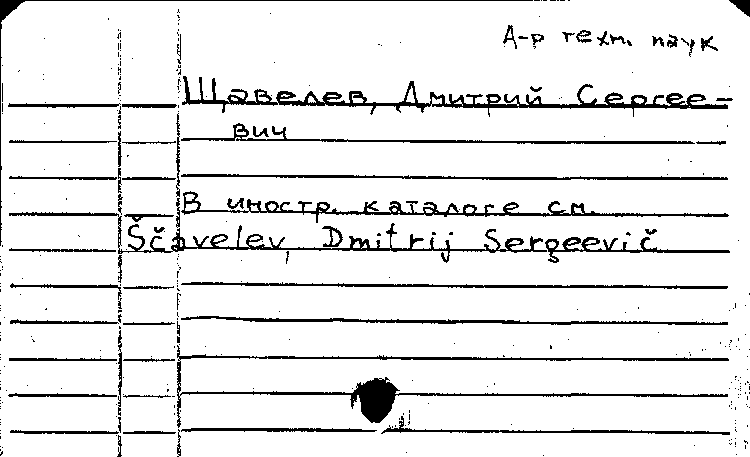 Д-р техн. наук
Щавелев, Дмитрий Сергее-
вич
В иностр. каталоге см.
Ščavelev, Dmitrij Sergeevič